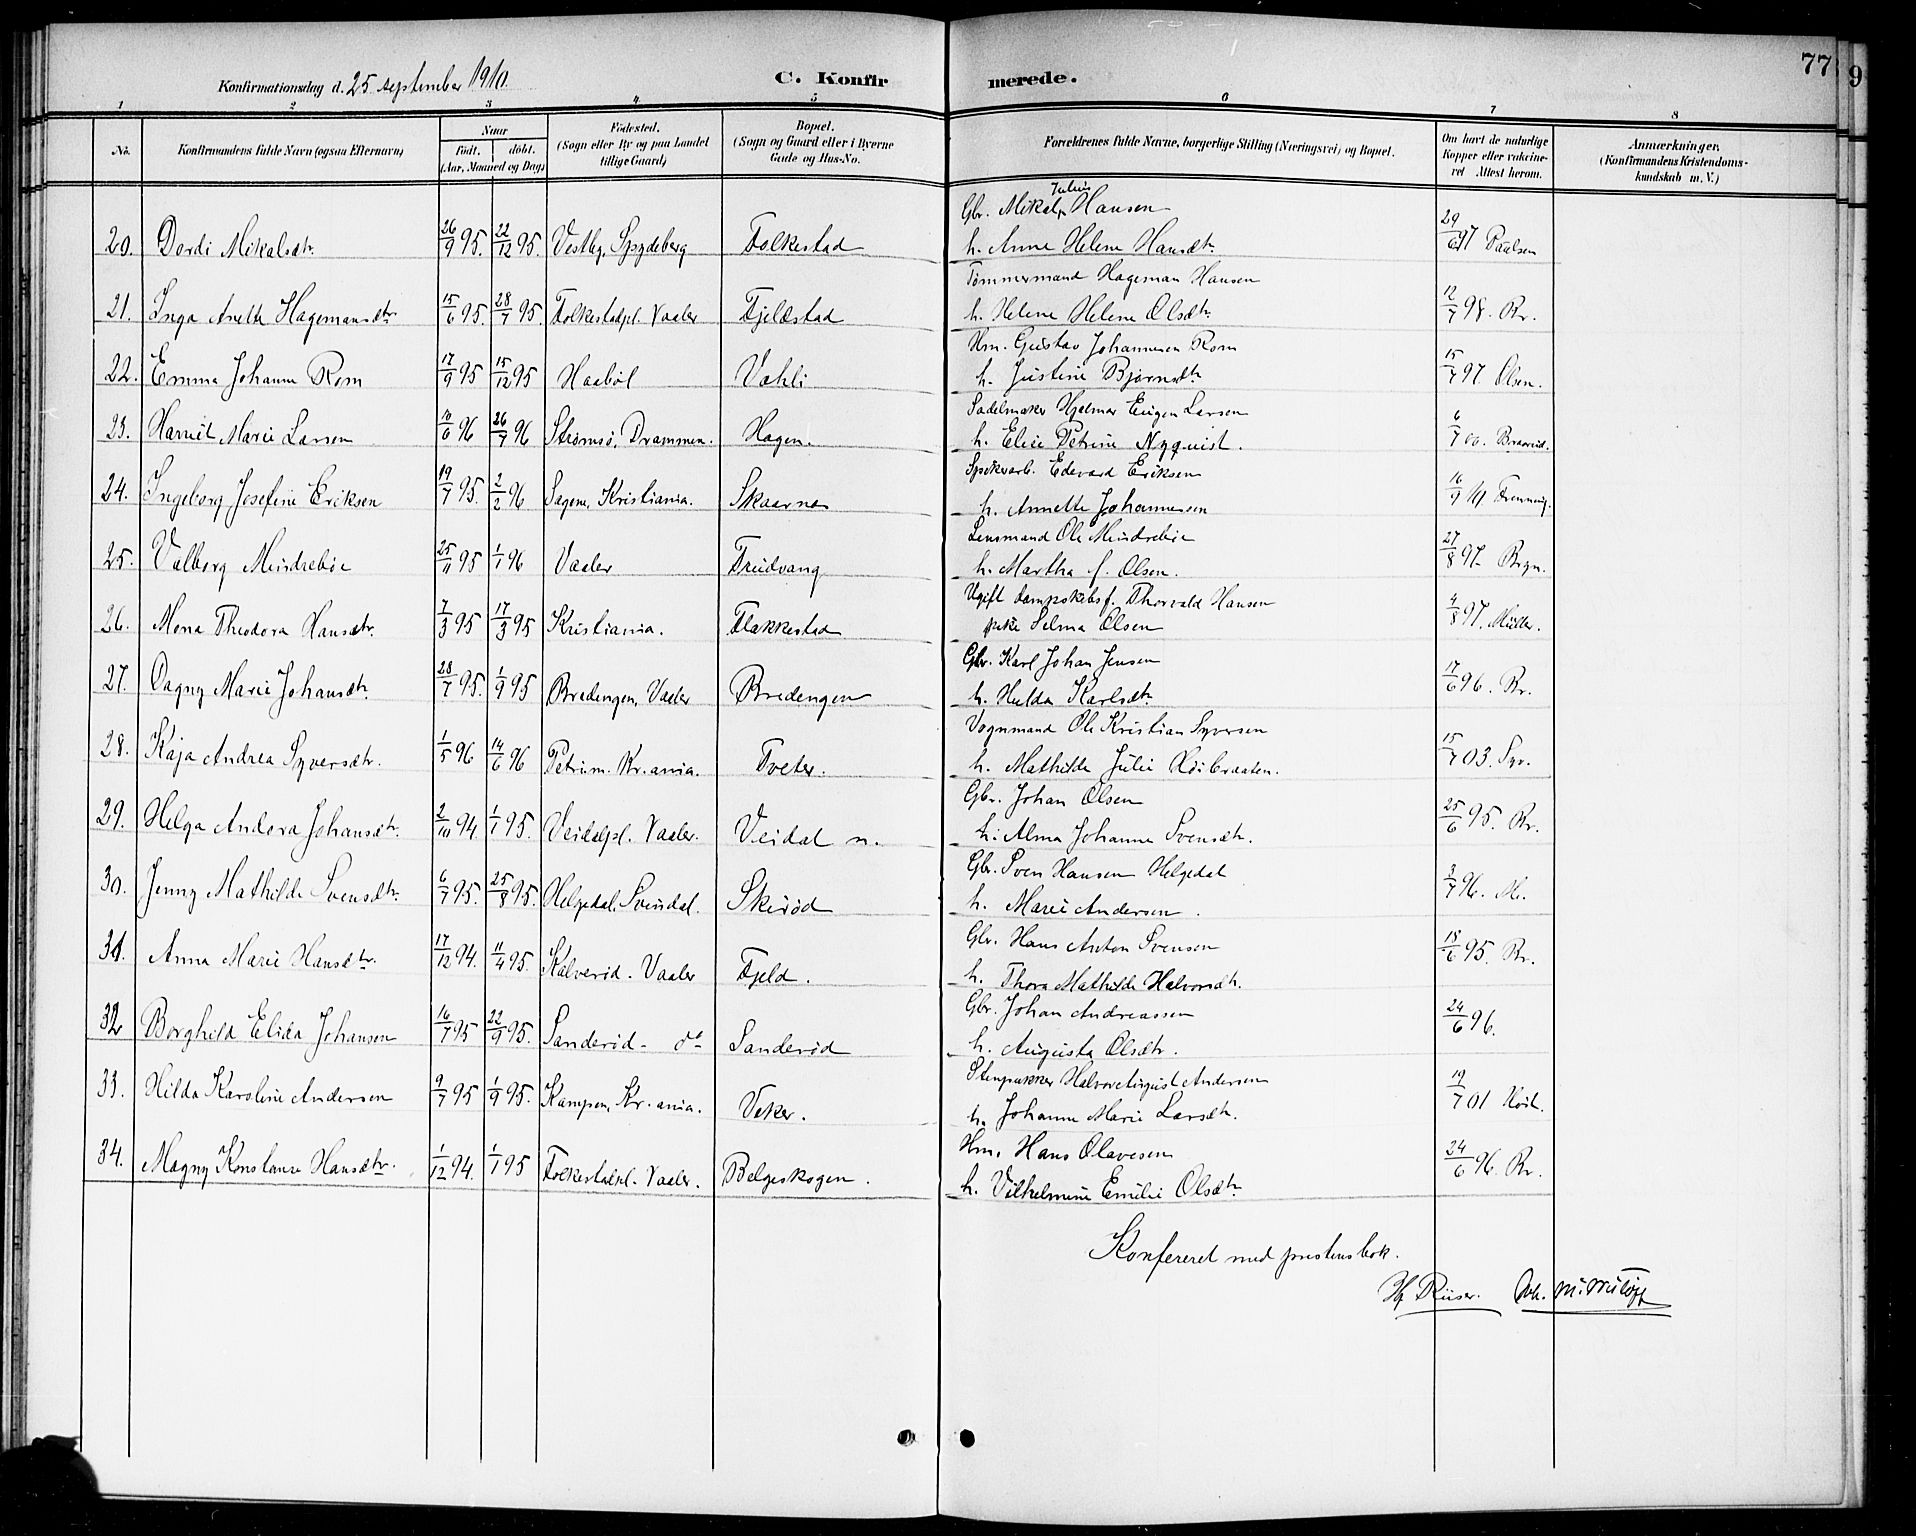 Konfirmationsdag d. 25 september 1910.
C. Konfirmerede.
77
9
1 2 3 4 5 6 7 8
No.
Konfirmandens fulde Navn (ogsaa Efternavn)
Naar
født. døbt.
(Aar, Maaned og Dag)
Fødested.
(Sogn eller By og paa Landet
tillige Gaard)
Bopæl.
(Sogn og Gaard eller i Byerne
Gade og Hus-No.
Forældrenes fulde Navne, borgerlige Stilling (Næringsvei) og Bopæl.
Om havt de naturlige
Kopper eller vaccine-
ret Attest herom.
Anmærkninger.
(Konfirmandens Kristendoms-
kundskab m. V.)
Julius
Gbr. Mikal Hansen
20. Dordi Mikalsdtr. 26/9 95. 22/12 95. Vestby, Spydeberg Folkestad h. Anne Helene Hansdtr. 29/6 97 Paulsen
Tømmermand Hageman Hansen
21. Inga Anette Hagemansdtr. 15/6 95. 28/7 95. Folkestadpl. Vaaler Fjelestad h. Helene Helene Olsdtr. 12/7 98. Br.
Hm. Gustav Johannesen Rom
22. Emma Johanne Rom 17/9 95 15/12 95 Haabøl Vahli h. Justine Bjørnsdtr. 15/7 97 Olsen.
Sadelmaker Hjelmar Eugen Larsen
23. Harriet Marie Larsen 10/6 96 26/7 96 Strømsø, Drammen. Hagen. h. Elise Petrine Nyquist. 6/7 00.
Edevard Eriksen
24. Ingeborg Josefine Eriksen 19/7 95. 2/2 96 Sagene, Kristiania. Skaarnes h. Annette Johannesen 16/9
Lensmand Ole Meidrebøe
25. Valborg Meidrebøe 25/11 95 1/1 96 Vaaler Friidvang h. Martha f. Olsen. 27/8 97 Brgn.
Ugift dampskibsf. Thorvald Hansen
26. Mona Theodora Hansdtr. 7/3 95 17/3 95 Kristiania. Flakkestad pike Selma Olsen 4/8 97. Müller.
Gbr. Karl Johan Jensen
27. Dagny Marie Johansdtr. 28/7 95. 1/9 95 Bredengen, Vaaler Bredengen h. Hulda Karlsdtr. 17/6 96. Br.
Vognmand Ole Kristian Syversen
28. Kaja Andrea Syversdtr. 1/5 96 14/6 96 Petrim. Kr.ania. Tveter. h. Mathilde Julie Høibraaten. 15/7 03. Syv.
Gbr. Johan Olsen
29. Helga Andora Johansdtr. 2/10 94. 1/1 95. Veidalpl. Vaaler. Veidal n. h. Alma Johanne Svensdtr. 25/6 95. Br.
Gbr. Sven Hansen Helgedal
30. Jenny Mathilde Svensdtr. 6/7 95. 25/8 95. Helgedal, Svindal. Skirød h. Marie Andersen. 3/7 96.
Gbr. Hans Anton Svensen
31. Anna Marie Hansdtr. 17/12 94. 11/4 95. Kalverød. Vaaler Fjeld. h. Thora Mathilde Halvorsdtr. 18/6 95. Br.
Gbr. Johan Andreassen
32 Borghild Elida Johansen 16/7 95 22/9 95. Sanderød - do Sanderød h. Augusta Olsdtr. 24/6 96.
Stenhukker Halvor August Andersen
33. Hilda Karoline Andersen 9/7 95 1/9 95. Kampen, Kr.ania. Veker. h. Johanne Marie Larsdtr. 19/7 01
Hm. Hans Olavesen
34. Magny Konstanse Hansdtr. 1/12 94. 1/1 95 Folkestadpl. Vaaler. Belgeskogen. h. Vilhelmine Emilie Olsdtr. 24/6 96. Br.
Konfereret med prestens bok.
Riiser. Joh.